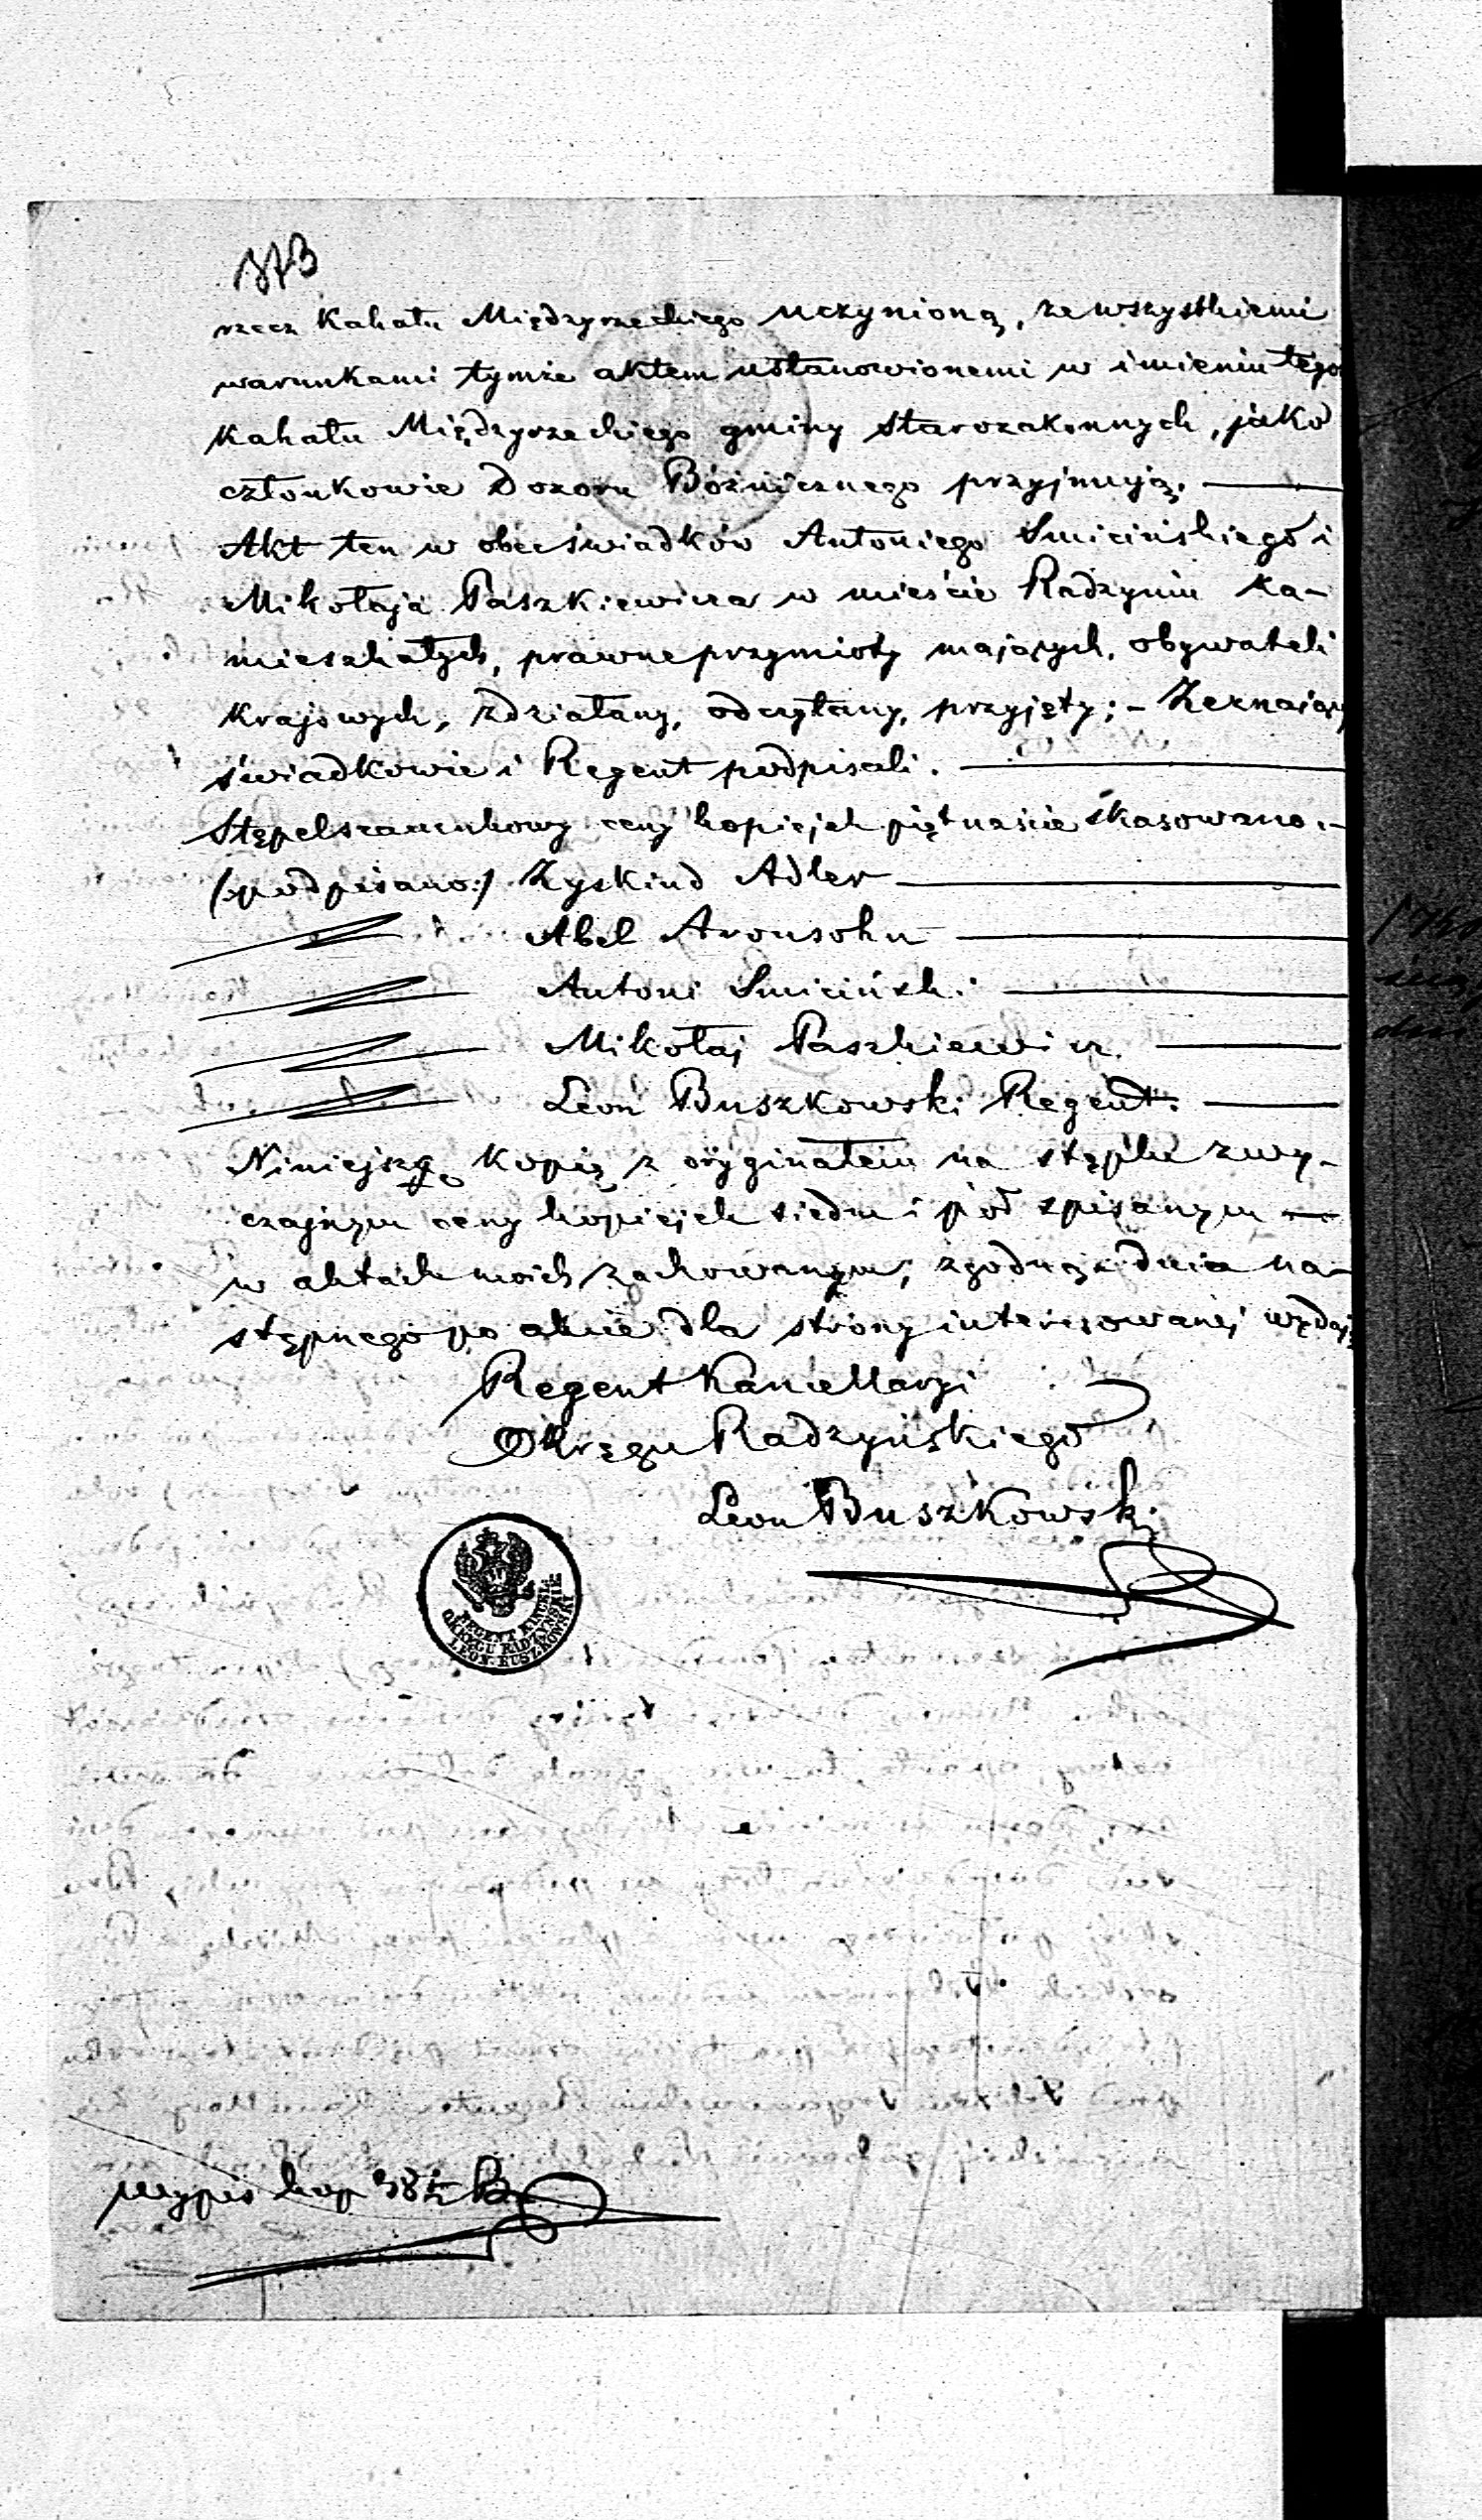 373
rzecz Kahału Międzyrzeckiego uczynioną, ze wszystkiemi
warunkami tymże aktem ustanowionemi w imieniu tegoż
Kahału Międzyrzeckiego gminy Starozakonnych, jako
członkowie Dozoru Bóżnicznego przyjmują.
Akt ten w obec świadków Antoniego Smicińskiego i
Mikołaja Paszkiewicza w mieście Radzyniu za-
mieszkałych, prawne przymioty mających, obywateli
Krajowych, zdziałany, odczytany, przyjęty; - Zeznający
świadkowie i Regent podpisali.
Stępel szacunkowy ceny kopiejek piętnaście skasowano.-
(podpisano:) Zyskind Adler
Abel Aronsohn
Antoni Smiciński
Mikołaj Paszkiewicz
Leon Buszkowski Regent.
Niniejszą Kopię z oryginałem na stęplu zwy-
czajnym ceny kopiejek siedm i pół spisanym
w aktach moich zachowanym, zgodną z dnia na-
stępnego po akcie dla strony interesowanej wydaję
Regent Kancellaryi
Okręgu Radzyńskiego
Leon Buszkowski
REGENT KANCEL.
OKRĘGU RADZYŃSKIE.
LEON BUSZKOWSKI
Wypis kop 38½